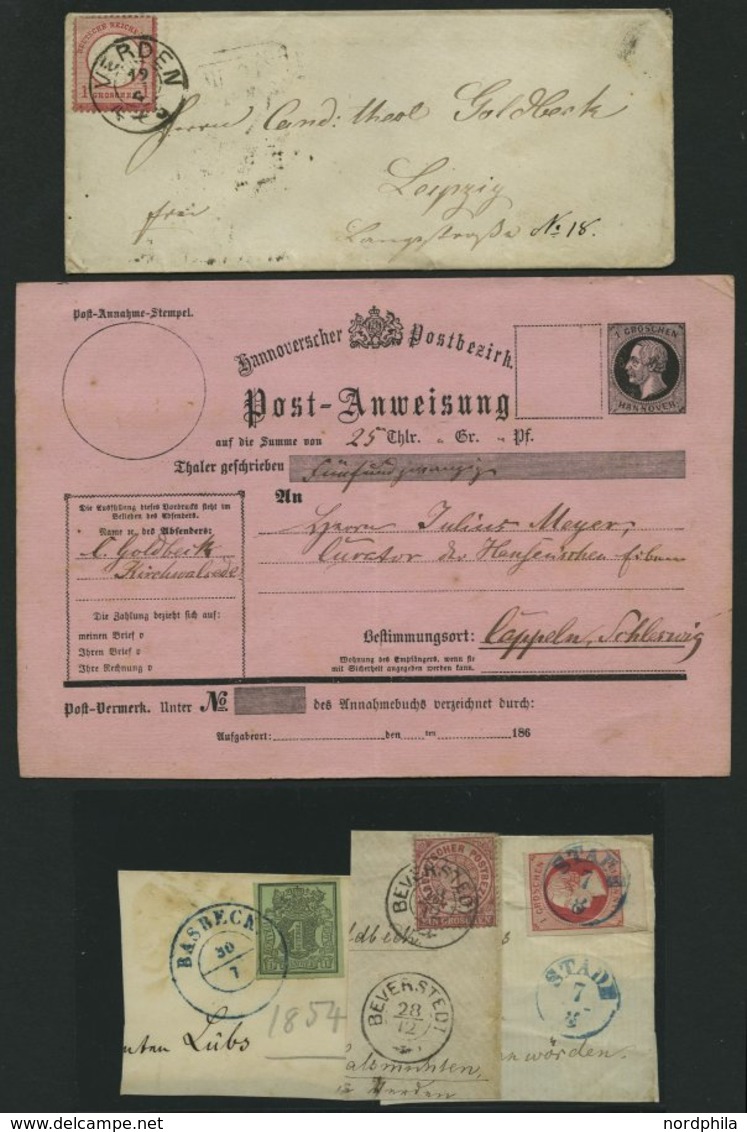 DEUTSCHE REICHS
1 GROSCHEN
VERDEN
19
Herrn Cand: theol Goldbeck
Leipzig
frei
Langestraße No 18.
Post-Annahme-Stempel.
Hannoverscher Postbezirk.
1 GROSCHEN
HANNOVER
Post-Anweisung
auf die Summe von 25 Thlr. " Gr. " Pf.
Thaler geschrieben Fünfundzwanzig
An
Die Ausfüllung dieses Vordrucks steht im
Belieben des Absenders.
Name ꝛc. des Absenders:
C. Goldbeck
Kirchwalsede
Herrn Julius Meyer,
Curator der Hensen'schen
Die Zahlung bezieht sich auf:
meinen Brief v
Ihren Brief v
Ihre Rechnung v
Bestimmungsort: Cappeln, Schleswig
Wohnung des Empfängers, wenn sie
mit Sicherheit angegeben werden kann.
Post-Vermerk. Unter No des Annahmebuchs verzeichnet durch:
Aufgabeort: den ten 186
BASBECK
30
7
1
1854
Lübs
BEVERSTEDT
BEVERSTEDT
28
12
1 GROSCHEN
STADE
7
STADE
7
Verden
wörden.
nordphila